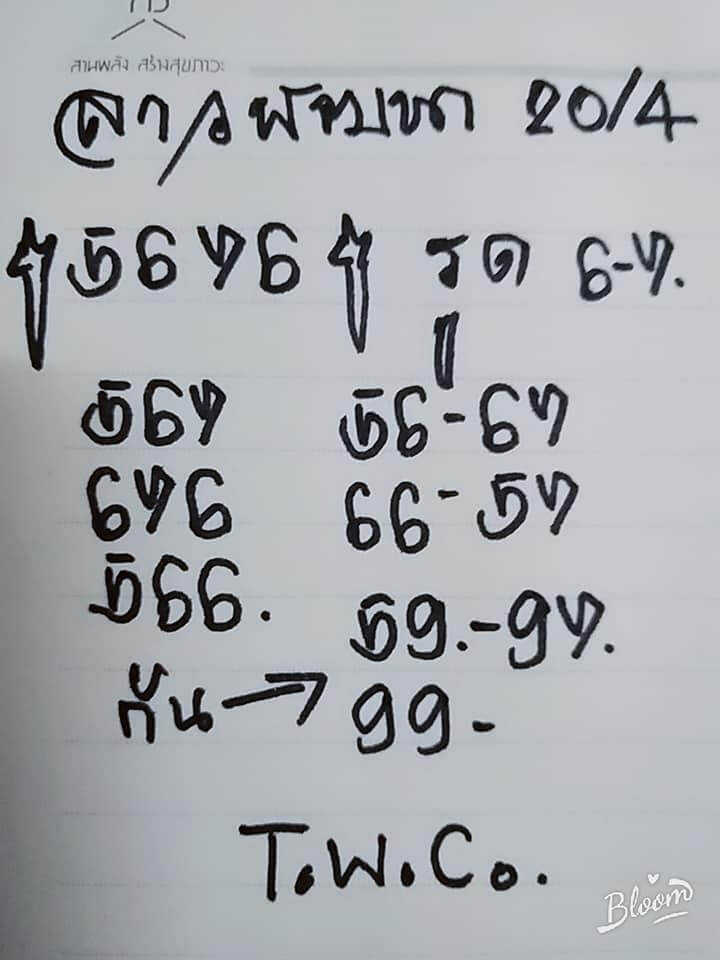 สานพลัง สร้างสุขภาวะ
ลาวพัฒนา 20/4
5676 รูด 6-7.
567 56-67
676 66-57
566. 59.-97.
กัน → 99-
T.W.Co.
Bloom